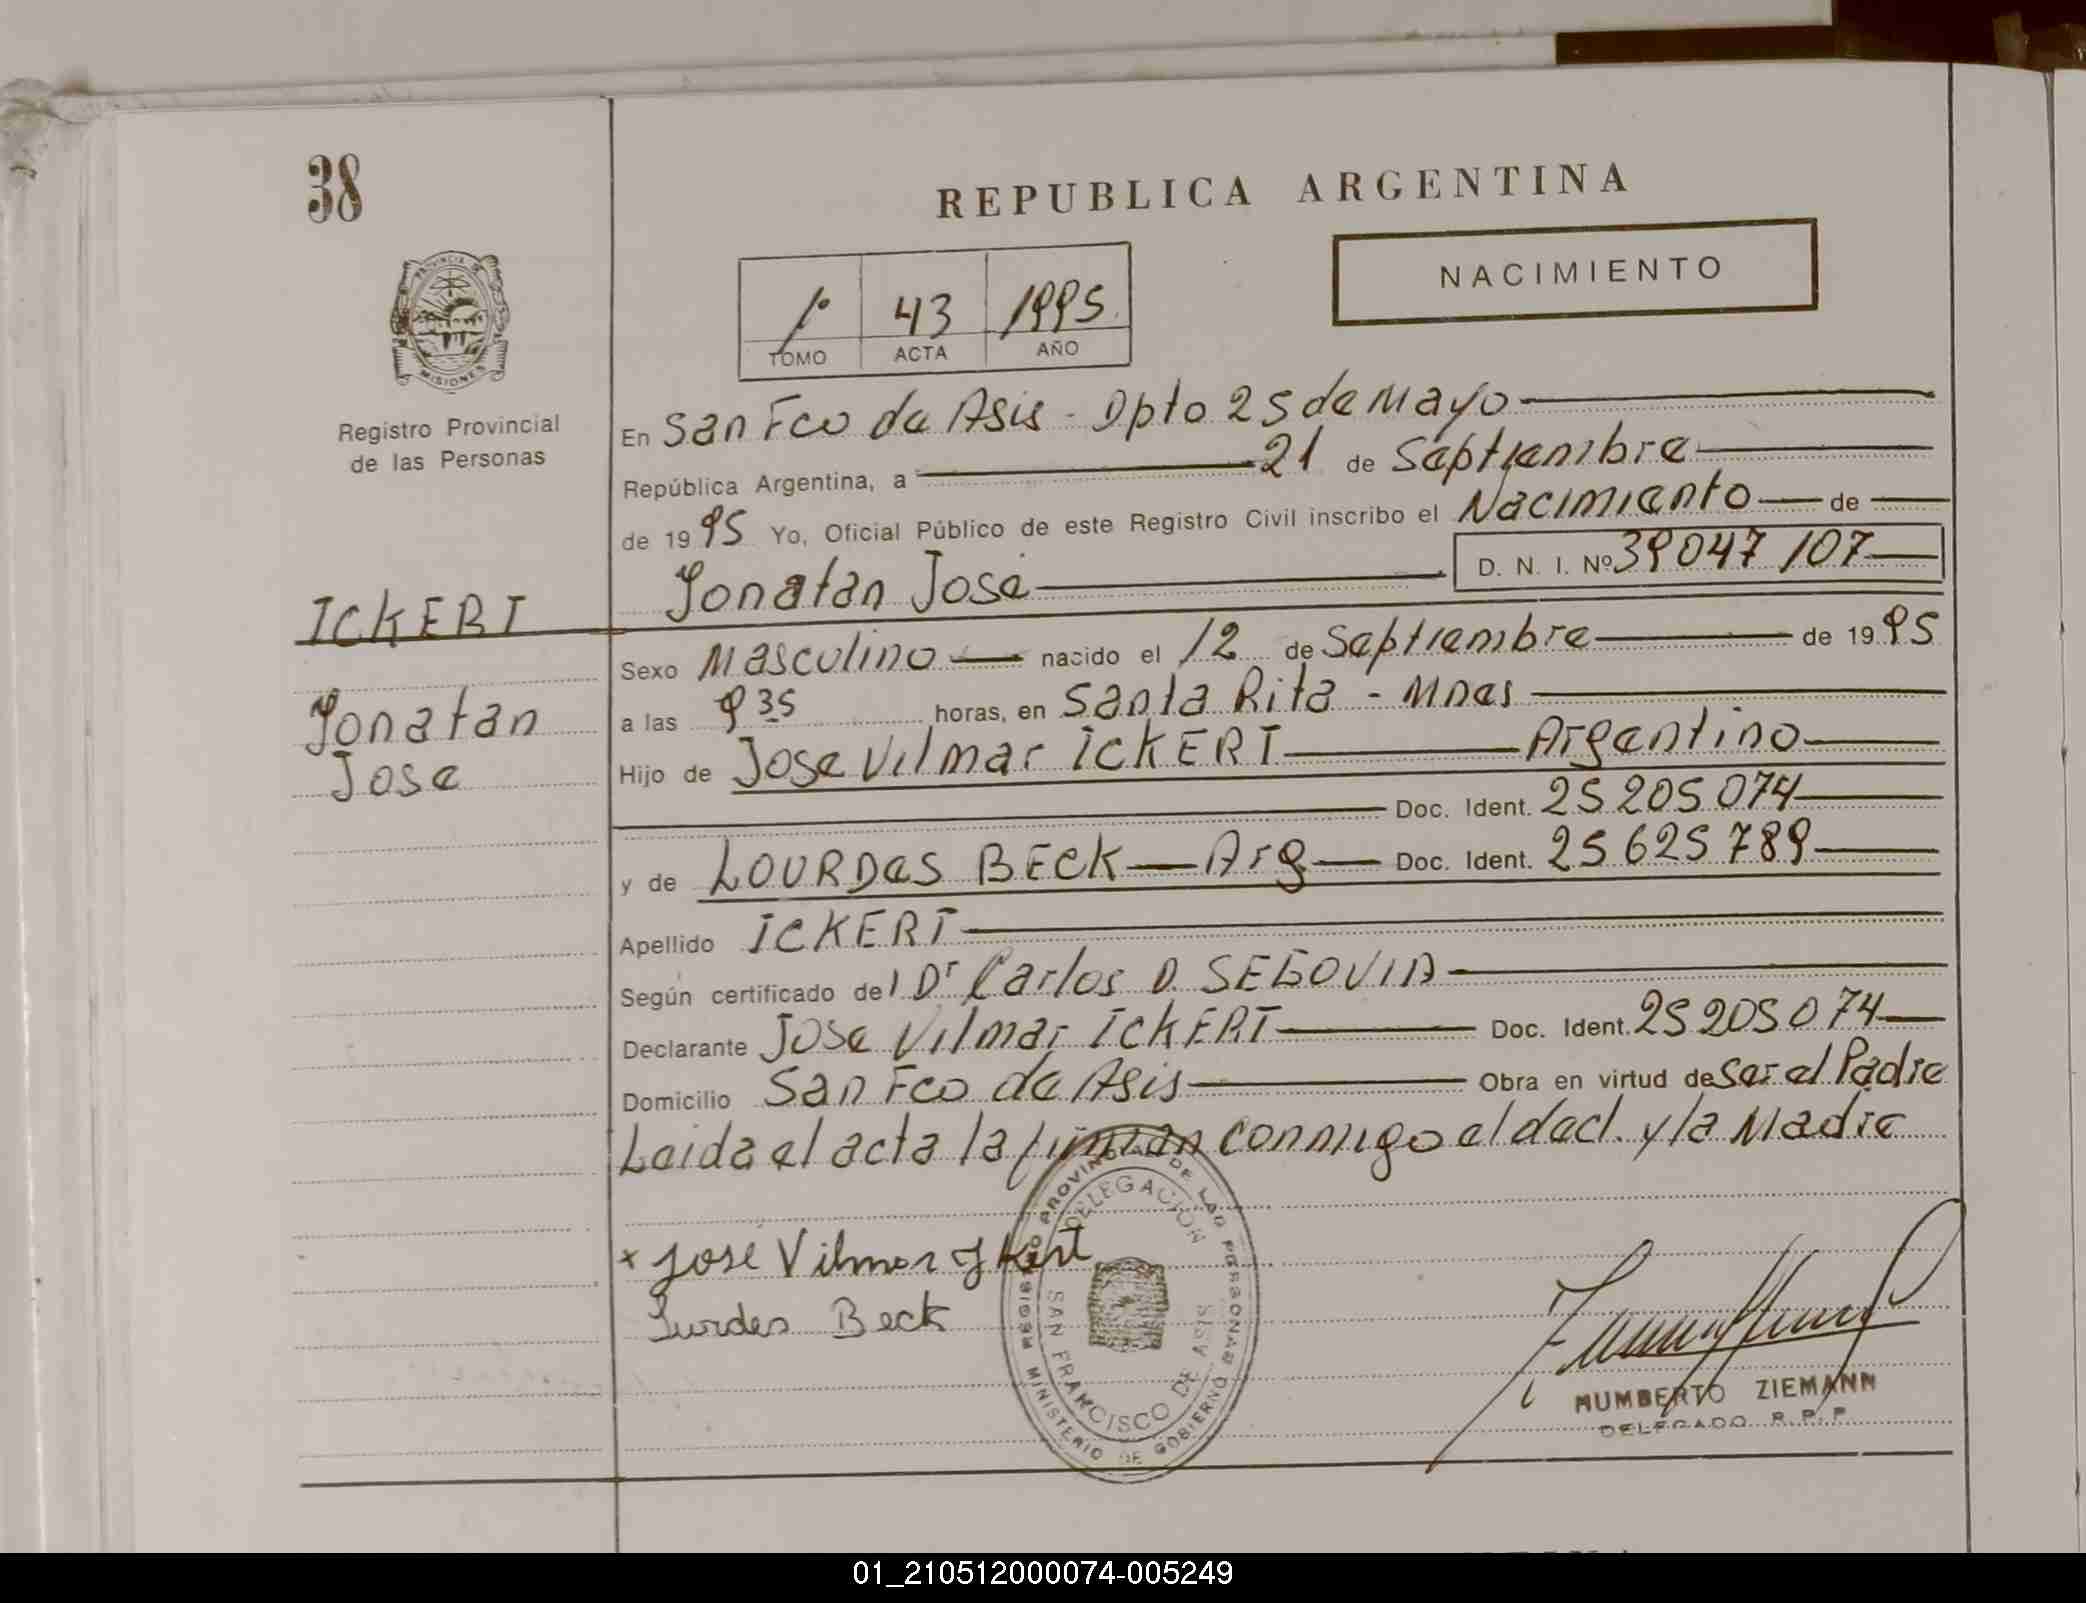 38
REPUBLICA ARGENTINA
NACIMIENTO
1º 43 1995
TOMO ACTA AÑO
PROVINCIA DE MISIONES
Registro Provincial
de las Personas
En San Fco de Asis - Dpto 25 de Mayo
República Argentina, a 21 de Septiembre
de 1995 Yo, Oficial Público de este Registro Civil inscribo el Nacimiento de
Jonatan José D. N. I. Nº 39047107
ICKERT
Jonatan
Jose
Sexo Masculino nacido el 12 de Septiembre de 1995
a las 9 35 horas, en Santa Rita - Mnes
Hijo de Jose Vilmar ICKERT Argentino
Doc. Ident. 25205074
y de LOURDes BECK Arg Doc. Ident. 25625789
Apellido ICKERT
Según certificado del Dr Carlos D. SEGOVIA
Declarante Jose Vilmar ICKERT Doc. Ident. 25205074
Domicilio San Fco de Asis Obra en virtud de Ser el Padre
Leida el acta la firman conmigo el decl. y la Madre
x José Vilmar Ikert
Lurdes Beck
REGISTRO PROVINCIAL DE LAS PERSONAS
DELEGACION
SAN FRANCISCO DE ASIS
MINISTERIO DE GOBIERNO
HUMBERTO ZIEMANN
DELEGADO R. P. P.
01_210512000074-005249